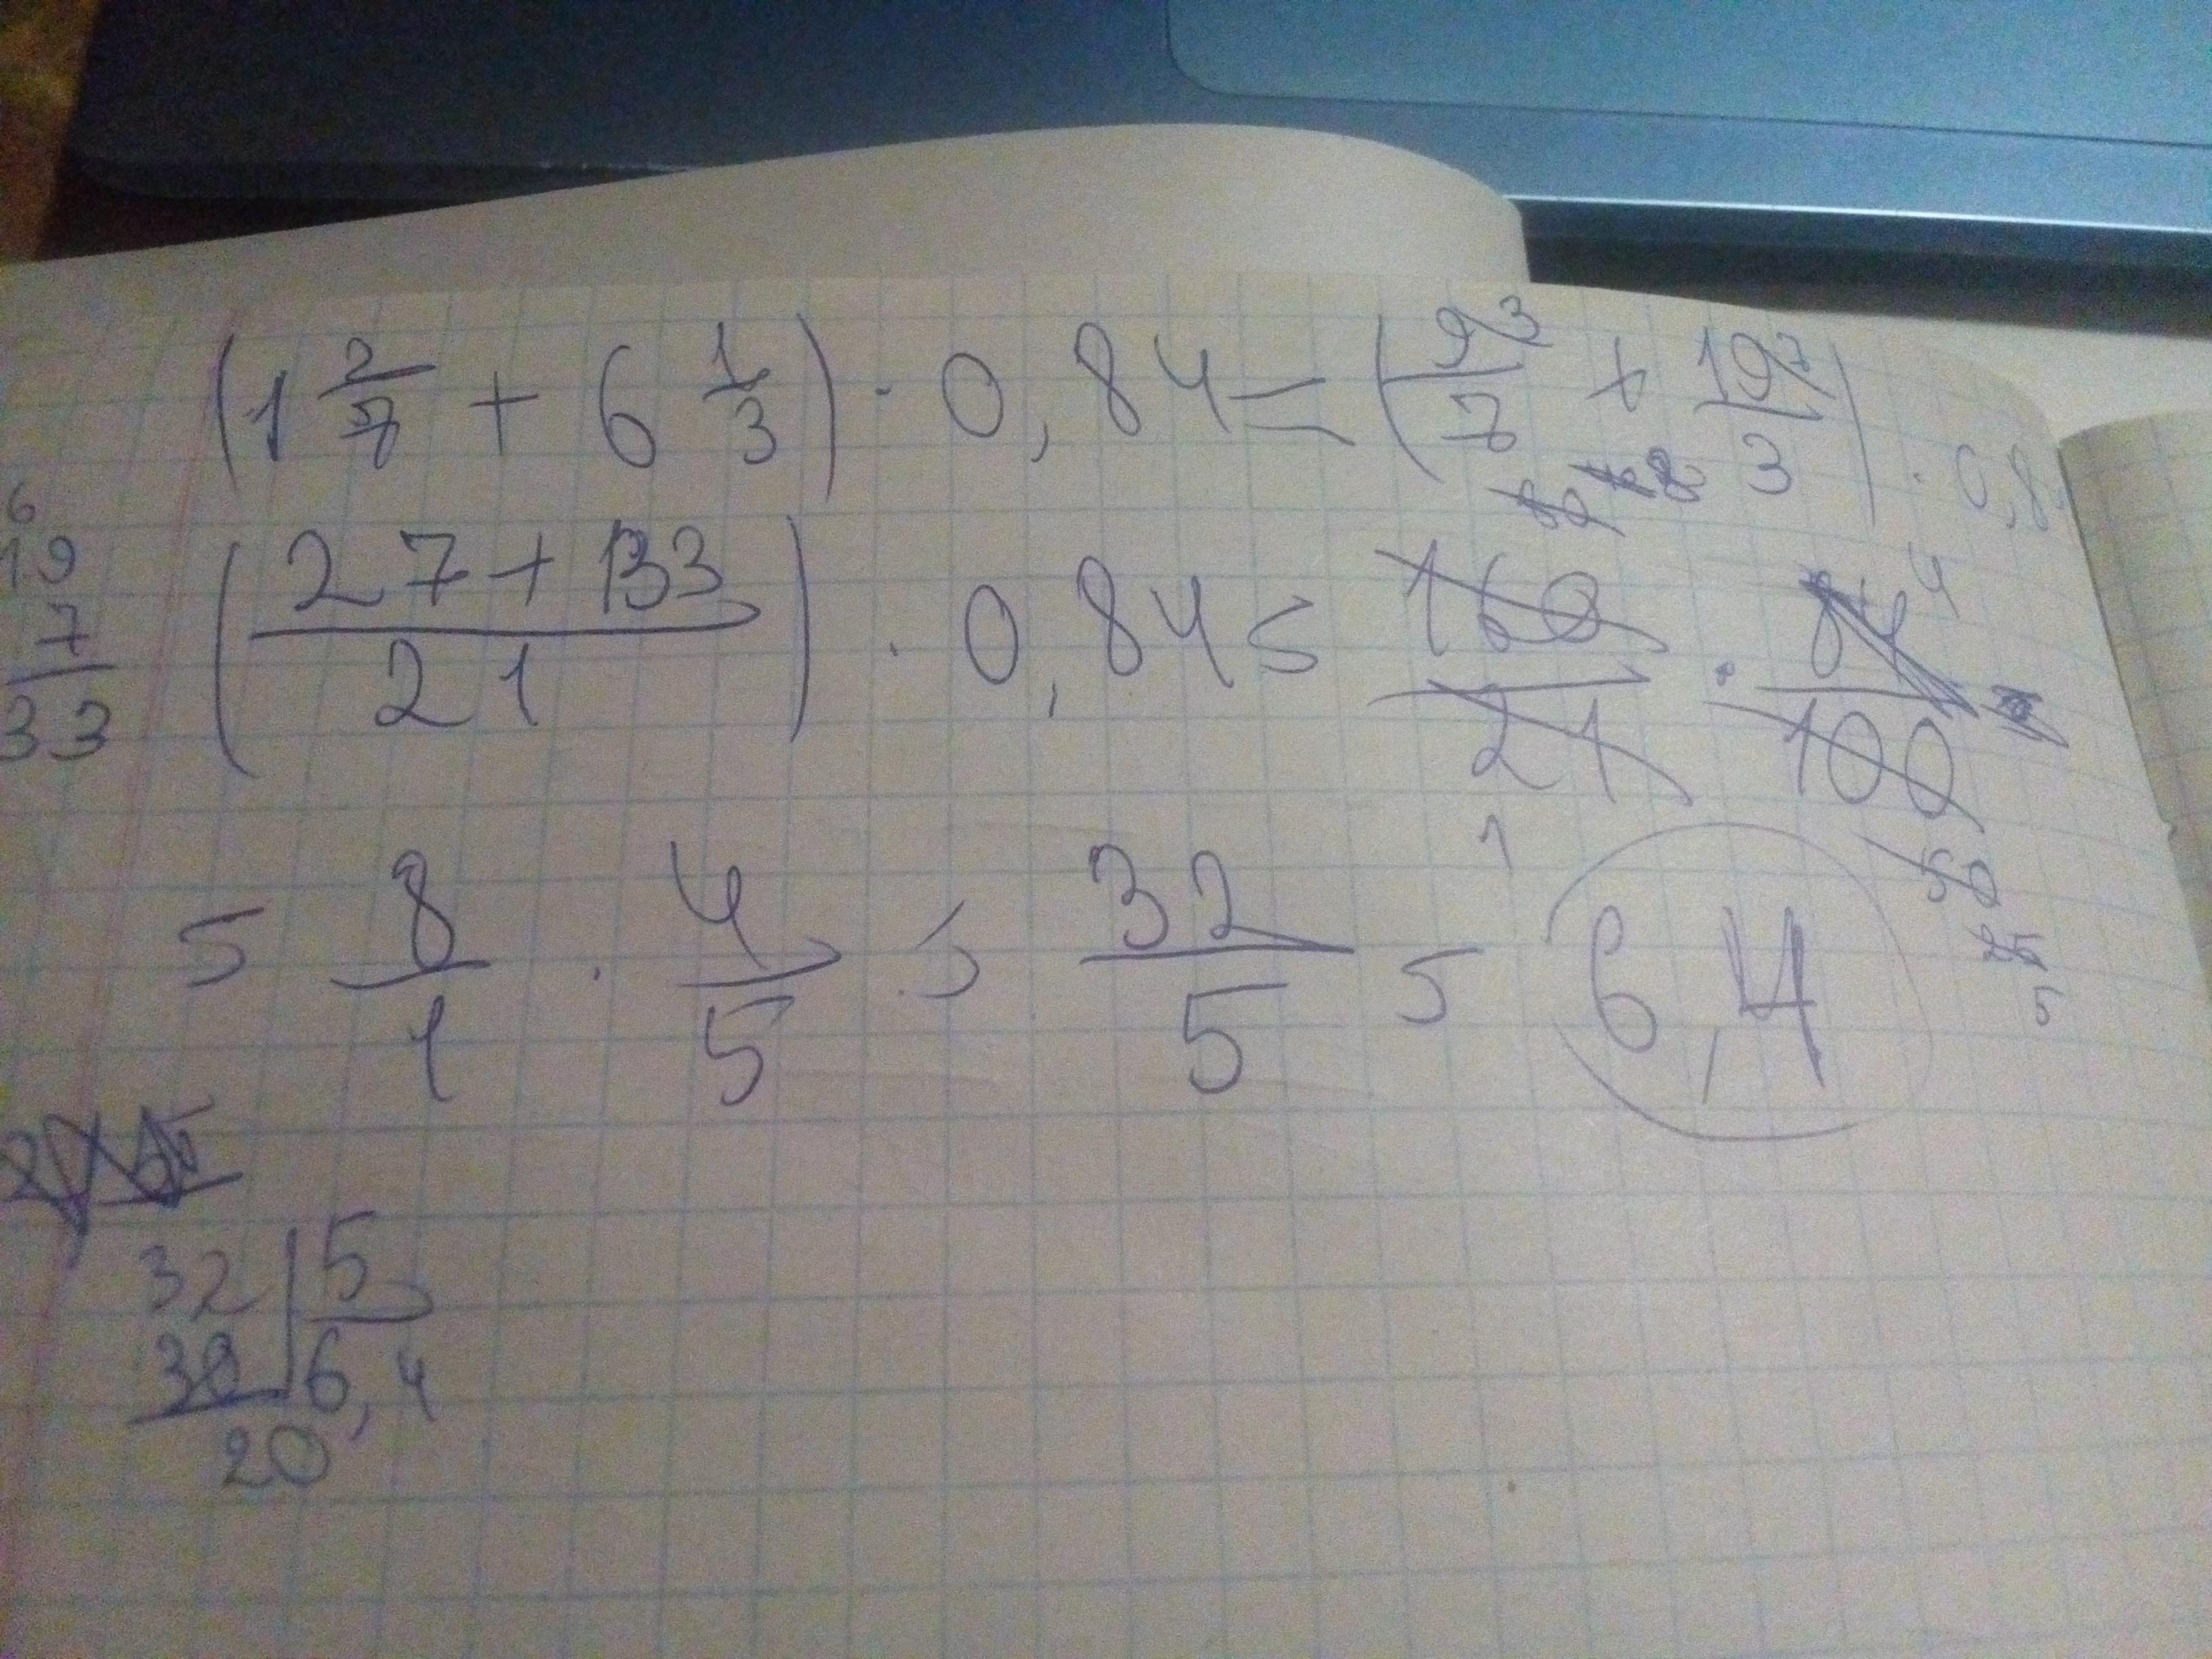 (1 2/7 + 6 1/3) · 0,84 = (9³/7 + 19⁷/3) · 0,8
6
19
7
33
(27+133/21) · 0,84 = 160/21 · 84⁴/100
80 8
1
50
25
5
= 8/1 · 4/5 = 32/5 = 6,4
32|5
30|6,4
20